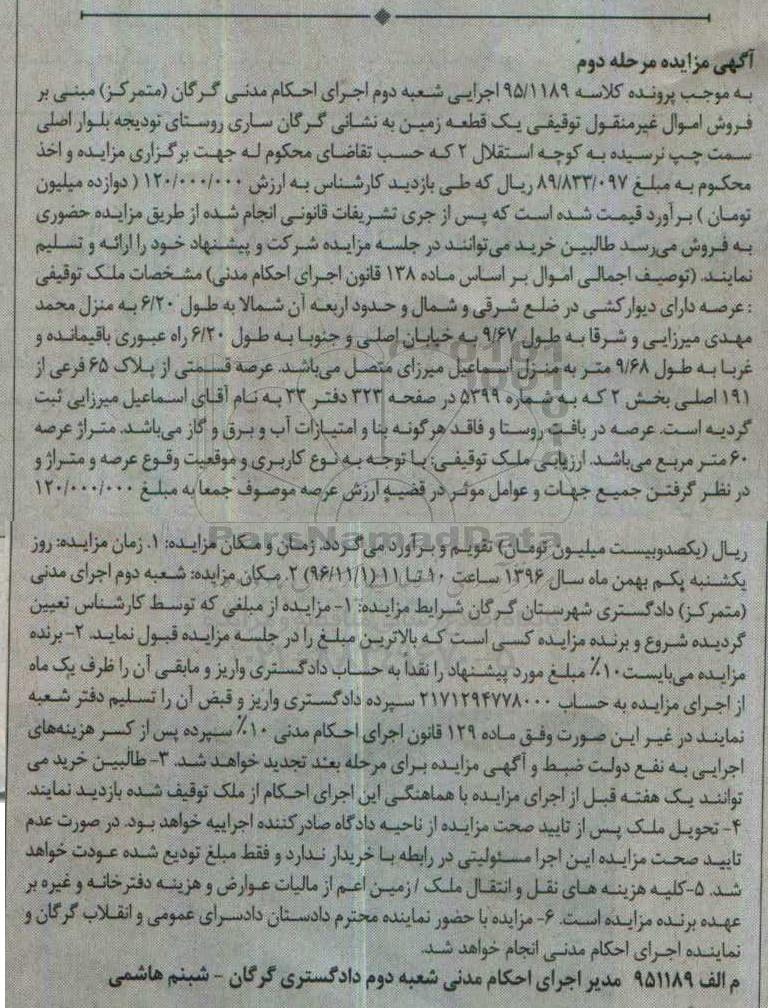 آگهی مزایده مرحله دوم
به موجب پرونده کلاسه ۹۵/۱۱۸۹ اجرایی شعبه دوم اجرای احکام مدنی گرگان (متمرکز) مبنی بر
فروش اموال غیرمنقول توقیفی یک قطعه زمین به نشانی گرگان ساری روستای تودیجه بلوار اصلی
سمت چپ نرسیده به کوچه استقلال ۲ که حسب تقاضای محکوم له جهت برگزاری مزایده و اخذ
محکوم به مبلغ ۸۹/۸۳۳/۰۹۷ ریال که طی بازدید کارشناس به ارزش ۱۲۰/۰۰۰/۰۰۰ ( دوازده میلیون
تومان ) برآورد قیمت شده است که پس از جری تشریفات قانونی انجام شده از طریق مزایده حضوری
به فروش می‌رسد طالبین خرید می‌توانند در جلسه مزایده شرکت و پیشنهاد خود را ارائه و تسلیم
نمایند. (توصیف اجمالی اموال بر اساس ماده ۱۳۸ قانون اجرای احکام مدنی) مشخصات ملک توقیفی
: عرصه دارای دیوارکشی در ضلع شرقی و شمال و حدود اربعه آن شمالا به طول ۶/۲۰ به منزل محمد
مهدی میرزایی و شرقا به طول ۹/۶۷ به خیابان اصلی و جنوبا به طول ۶/۲۰ راه عبوری باقیمانده و
غربا به طول ۹/۶۸ متر به منزل اسماعیل میرزای متصل می‌باشد. عرصه قسمتی از پلاک ۶۵ فرعی از
۱۹۱ اصلی بخش ۲ که به شماره ۵۳۹۹ در صفحه ۳۲۳ دفتر ۳۳ به نام آقای اسماعیل میرزایی ثبت
گردیه است. عرصه در بافت روستا و فاقد هرگونه بنا و امتیازات آب و برق و گاز می‌باشد. متراژ عرصه
۶۰ متر مربع می‌باشد. ارزیابی ملک توقیفی: با توجه به نوع کاربری و موقعیت وقوع عرصه و متراژ و
در نظر گرفتن جمیع جهات و عوامل موثر در قضیه ارزش عرصه موصوف جمعا به مبلغ ۱۲۰/۰۰۰/۰۰۰
ParsNamadData
ریال (یکصدوبیست میلیون تومان) تقویم و برآورد می‌گردد. زمان و مکان مزایده: ۱. زمان مزایده: روز
یکشنبه یکم بهمن ماه سال ۱۳۹۶ ساعت ۱۰ تا ۱۱ (۹۶/۱۱/۱) ۲. مکان مزایده: شعبه دوم اجرای مدنی
(متمرکز) دادگستری شهرستان گرگان شرایط مزایده: ۱- مزایده از مبلغی که توسط کارشناس تعیین
گردیده شروع و برنده مزایده کسی است که بالاترین مبلغ را در جلسه مزایده قبول نماید. ۲- برنده
مزایده می‌بایست ۱۰٪ مبلغ مورد پیشنهاد را نقدا به حساب دادگستری واریز و مابقی آن را ظرف یک ماه
از اجرای مزایده به حساب ۲۱۷۱۲۹۴۷۷۸۰۰۰ سپرده دادگستری واریز و قبض آن را تسلیم دفتر شعبه
نمایند در غیر این صورت وفق ماده ۱۲۹ قانون اجرای احکام مدنی ۱۰٪ سپرده پس از کسر هزینه‌های
اجرایی به نفع دولت ضبط و آگهی مزایده برای مرحله بعد تجدید خواهد شد. ۳- طالبین خرید می
توانند یک هفته قبل از اجرای مزایده با هماهنگی این اجرای احکام از ملک توقیف شده بازدید نمایند.
۴- تحویل ملک پس از تایید صحت مزایده از ناحیه دادگاه صادرکننده اجراییه خواهد بود. در صورت عدم
تایید صحت مزایده این اجرا مسئولیتی در رابطه با خریدار ندارد و فقط مبلغ تودیع شده عودت خواهد
شد. ۵-کلیه هزینه های نقل و انتقال ملک / زمین اعم از مالیات عوارض و هزینه دفترخانه و غیره بر
عهده برنده مزایده است. ۶- مزایده با حضور نماینده محترم دادستان دادسرای عمومی و انقلاب گرگان و
نماینده اجرای احکام مدنی انجام خواهد شد.
م الف ۹۵۱۱۸۹ مدیر اجرای احکام مدنی شعبه دوم دادگستری گرگان - شبنم هاشمی